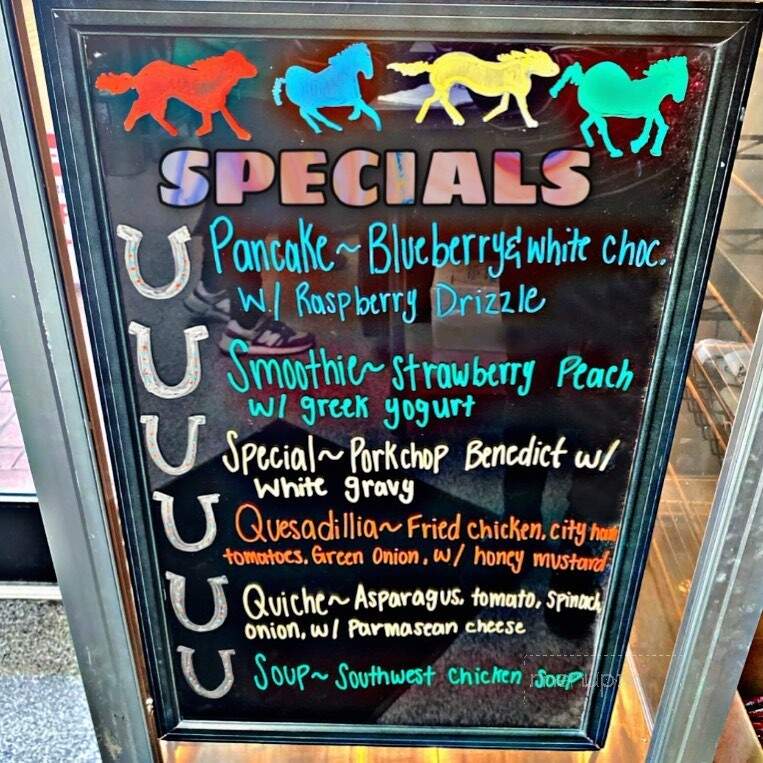 SPECIALS
Pancake~Blueberry& white choc.
w/ Raspberry Drizzle
Smoothie~ Strawberry Peach
w/ greek yogurt
Special~Porkchop Benedict w/
white gravy
Quesadillia~ Fried chicken, city ham
tomatoes, Green Onion, w/ honey mustard
Quiche~Asparagus, tomato, spinach
onion, w/ Parmasean cheese
Soup~ Southwest chicken Soup